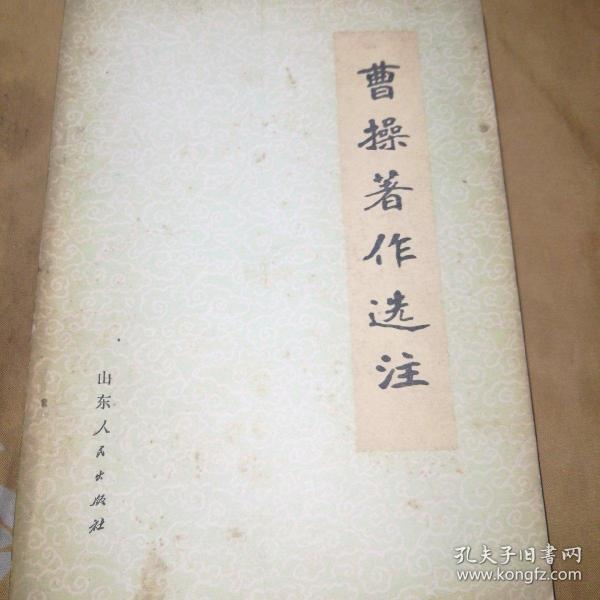 曹操著作选注
山东人民出版社
孔夫子旧书网
www.kongfz.com